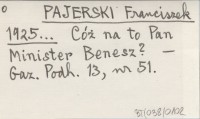 PAJERSKI Franciszek
1925... Cóż na to Pan
Minister Benesz? —
Gaz. Podh. 13, nr 51.